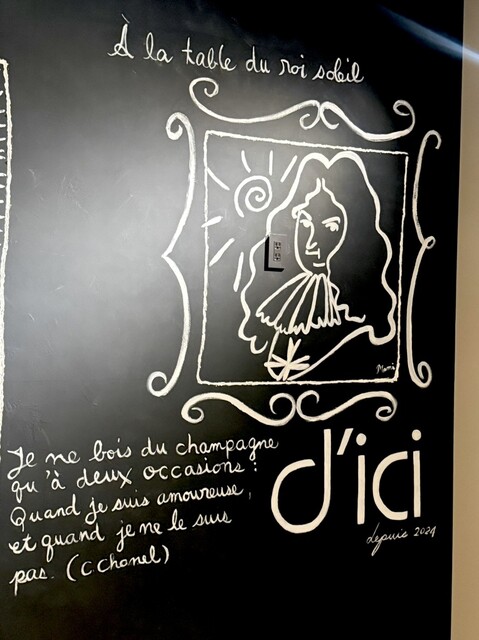 À la table du roi soleil
Mami
Je ne bois du champagne
qu'à deux occasions :
Quand je suis amoureuse,
et quand je ne le suis
pas. (C. Chanel)
d'ici
depuis 2024